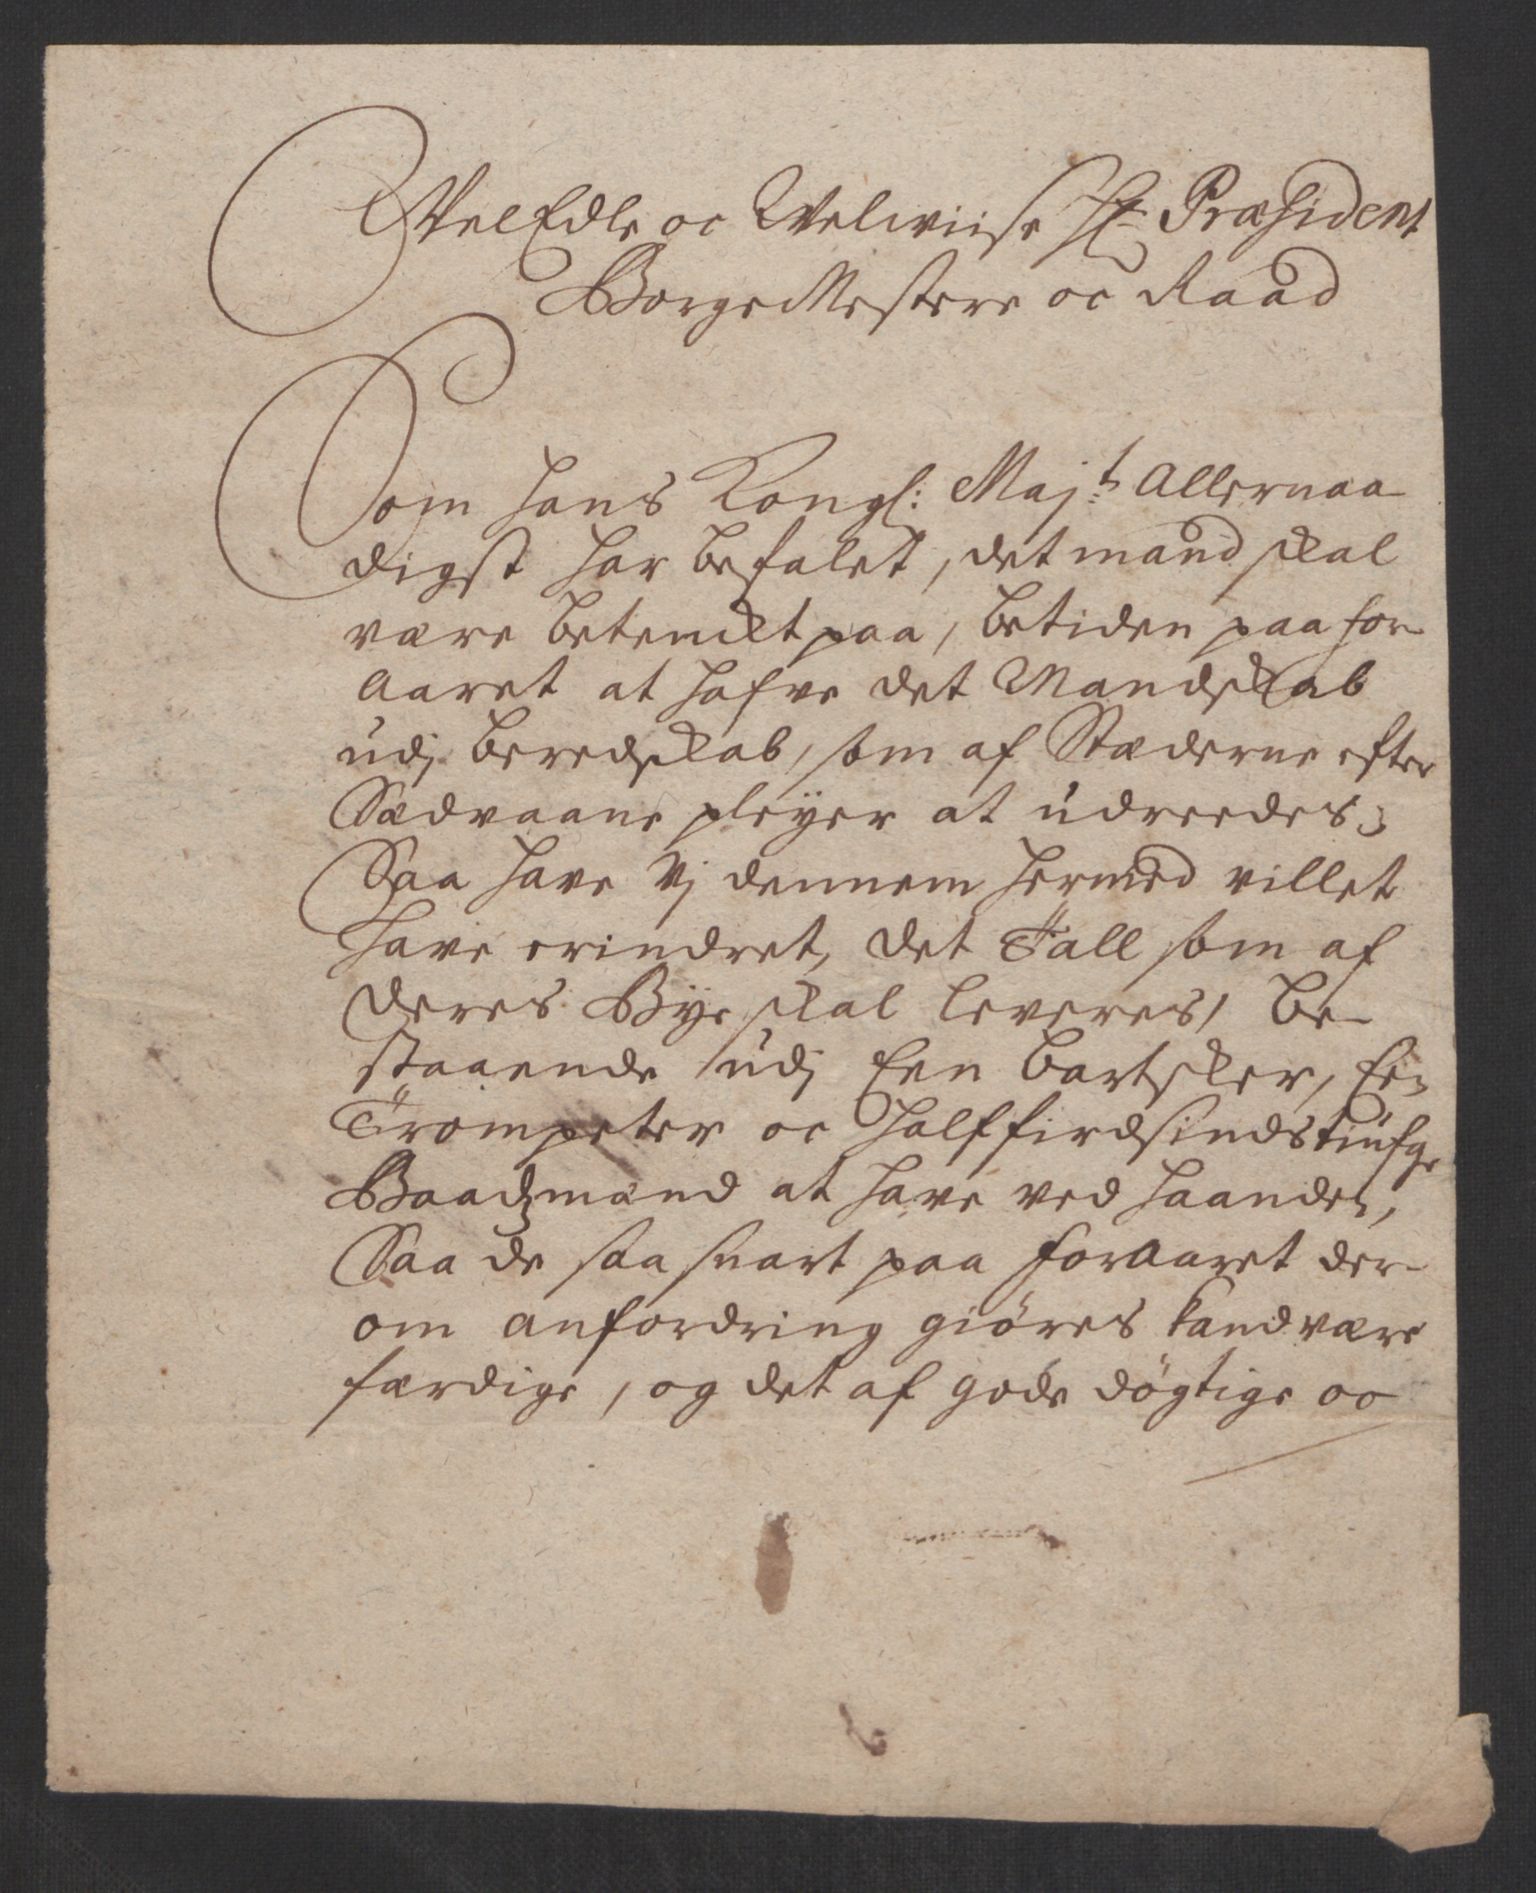 WelEdle oc Welwiise Hr Præsident
BorgeMestere oc Raad
Som hans Kongl: Majts Allernaa
digst har befalet, det mand skal
være betenckt paa, betiden paa for-
Aaret at hafve det Mandskab
udj beredskab, som af Stæderne efter
Sædvaane pleÿer at udreedes;
Saa have Vj dennem hermed villet
have erindret, det Tall som af
deres Bÿe skal leveres, be-
staaende udj Een bartsker, En
Trompeter oc Halffierdsindstiufge
Baadzmænd at have ved haanden,
Saa de saa snart paa foraaret der-
om anfordring giöres kand være
færdige, og det af gode dögtige oc